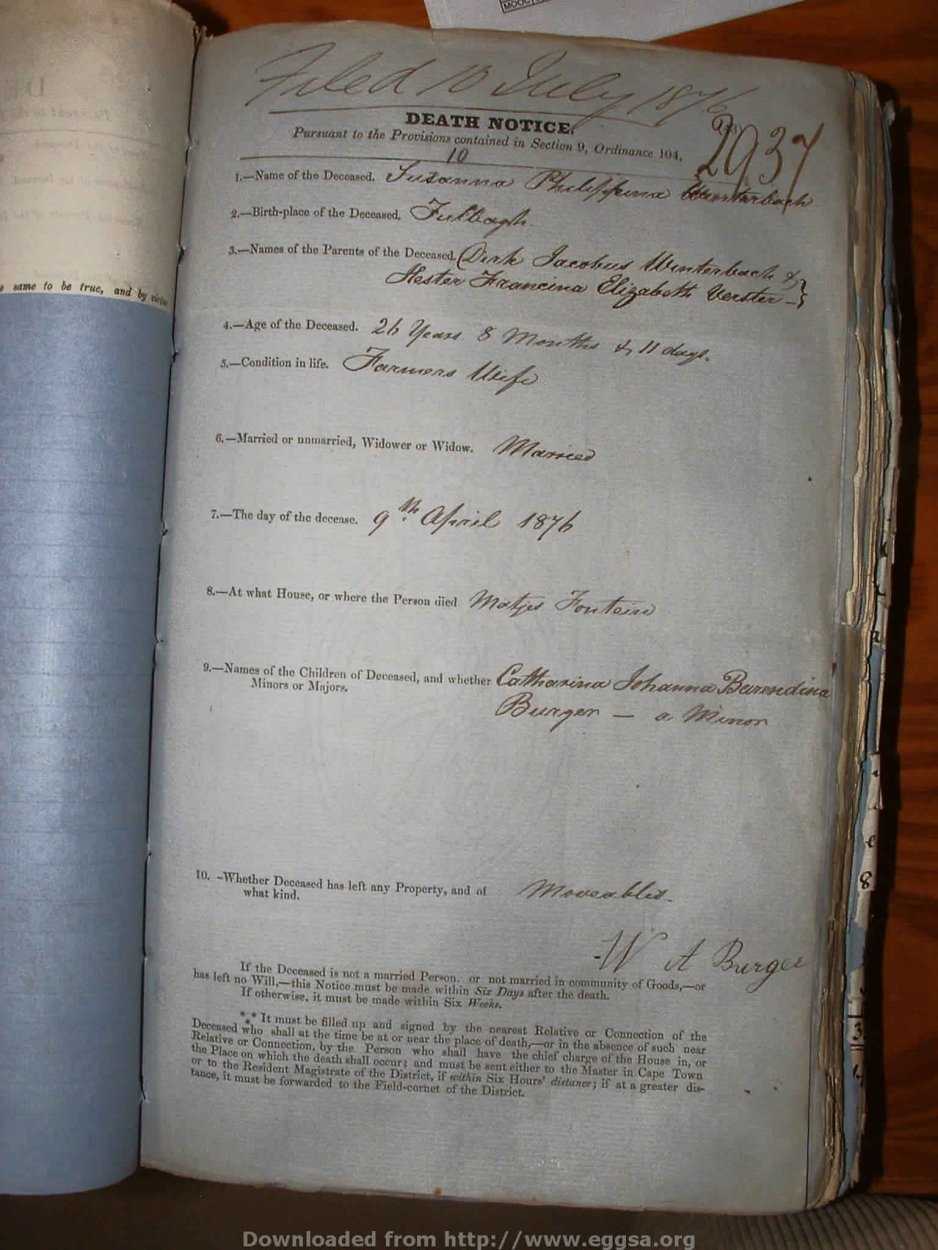 MOOC
Filed 10 July 1876
DEATH NOTICE.
2937
Pursuant to the Provisions contained in Section 9, Ordinance 104.
10
1.—Name of the Deceased. Susanna Philippina Winterbach
2.—Birth-place of the Deceased. Tulbagh.
3.—Names of the Parents of the Deceased. (Dirk Jacobus Winterbach &
Hester Francina Elizabeth Verster —}
4.—Age of the Deceased. 26 Years 8 Months & 11 days.
5.—Condition in life. Farmers Wife
6.—Married or unmarried, Widower or Widow. Married
7.—The day of the decease. 9th April 1876
8.—At what House, or where the Person died Matjes Fontein
9.—Names of the Children of Deceased, and whether Catharina Johanna Barendina
Minors or Majors. Burger — a Minor
10. -Whether Deceased has left any Property, and of Moveables.
what kind.
W A Burger
If the Deceased is not a married Person, or not married in community of Goods,—or
has left no Will,—this Notice must be made within Six Days after the death.
If otherwise, it must be made within Six Weeks.
*** It must be filled up and signed by the nearest Relative or Connection of the
Deceased who shall at the time be at or near the place of death,—or in the absence of such near
Relative or Connection, by the Person who shall have the chief charge of the House in, or
the Place on which the death shall occur; and must be sent either to the Master in Cape Town
or to the Resident Magistrate of the District, if within Six Hours' distance; if at a greater dis-
tance, it must be forwarded to the Field-cornet of the District.
e same to be true, and by virtue
Downloaded from http://www.eggsa.org